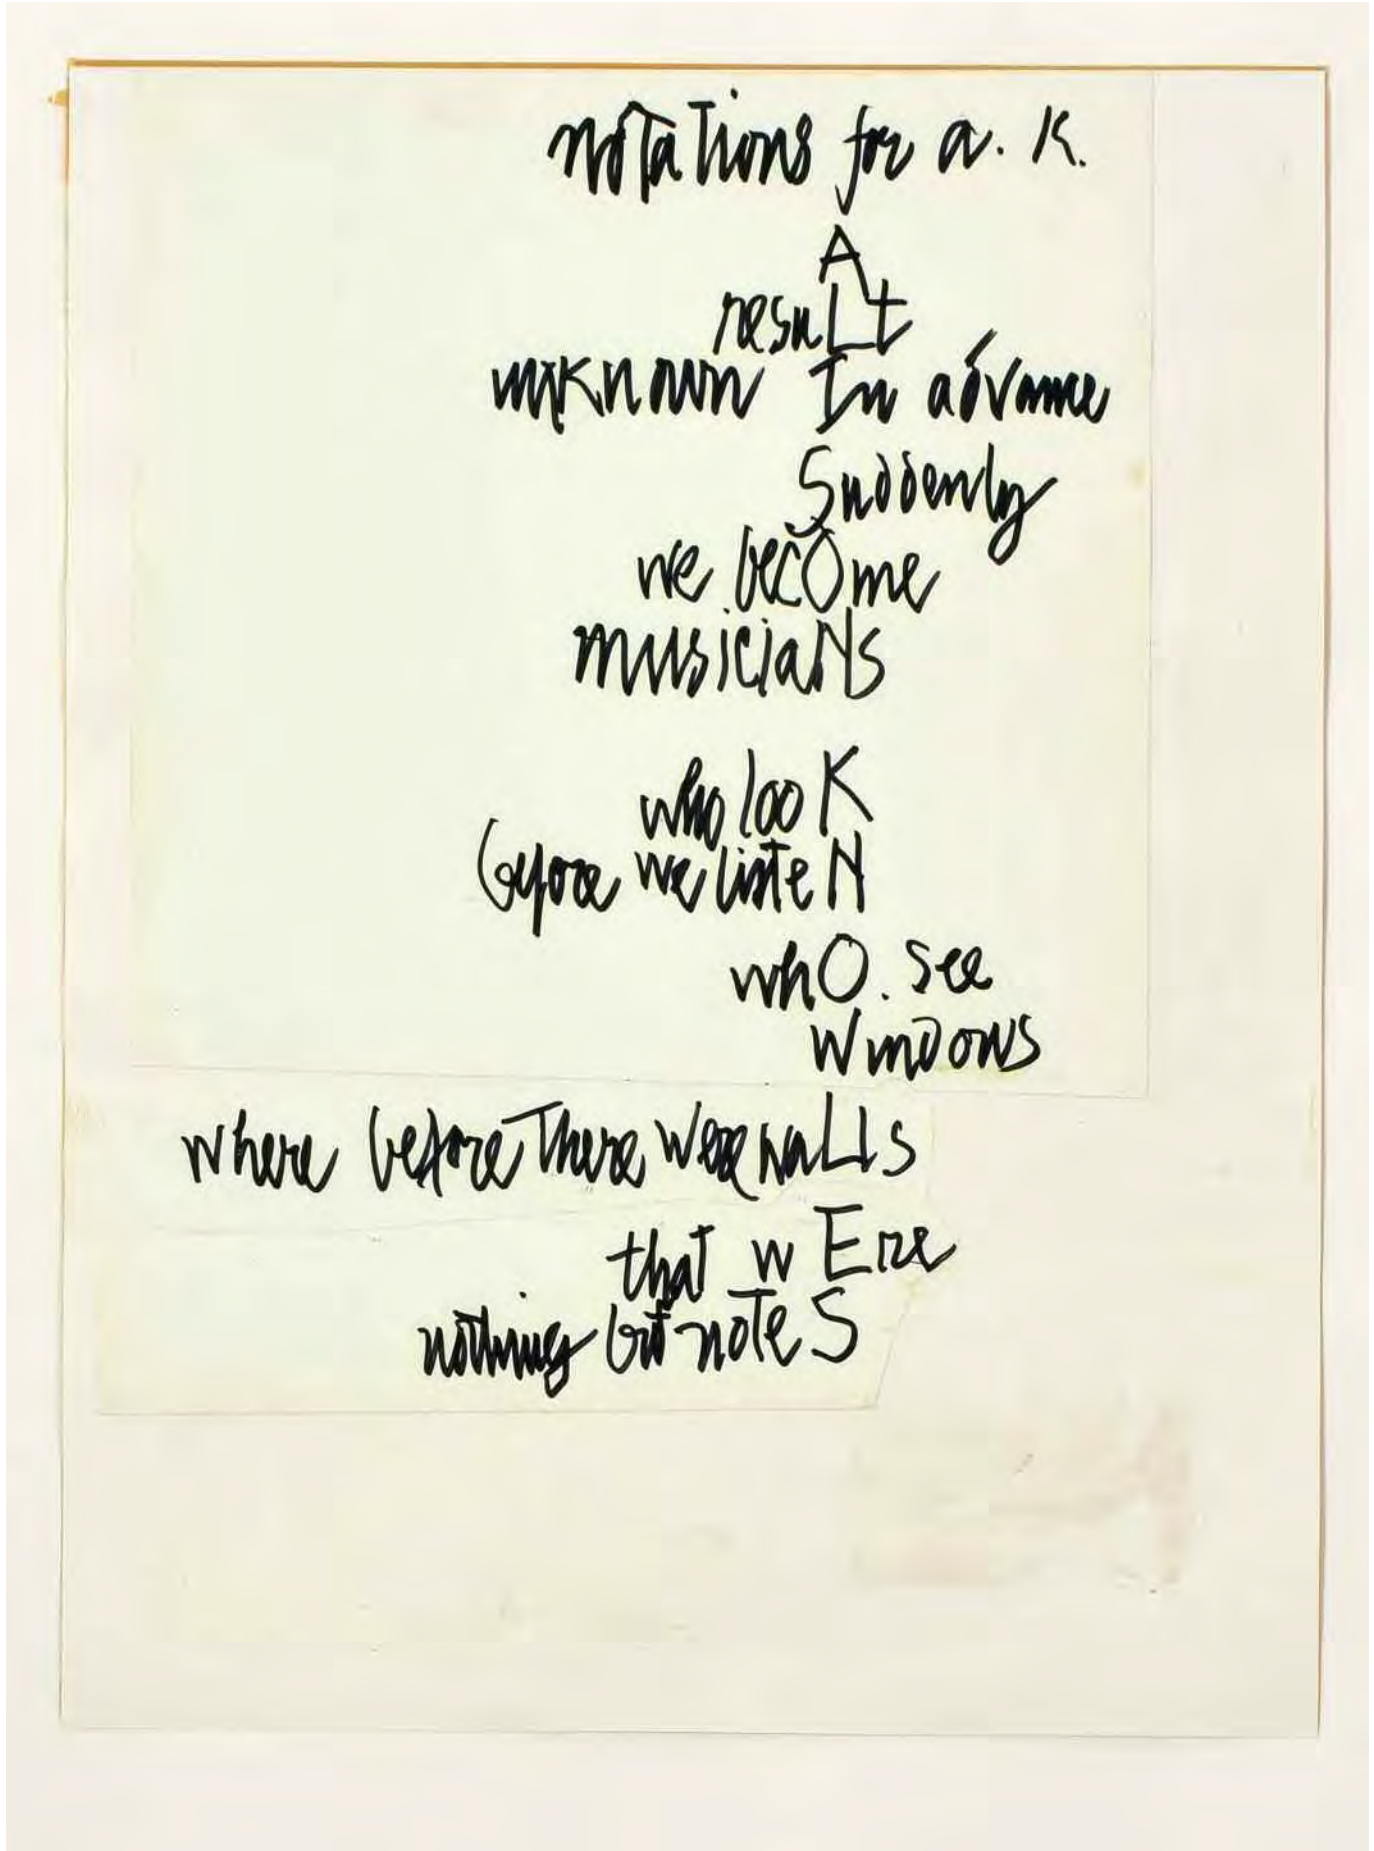 notations for a. K.
A
resuLt
unknown In advance
Suddenly
we becOme
musiciaNs
who looK
before we listeN
whO. see
WinDows
where before There were waLls
that wEre
nothing but noteS